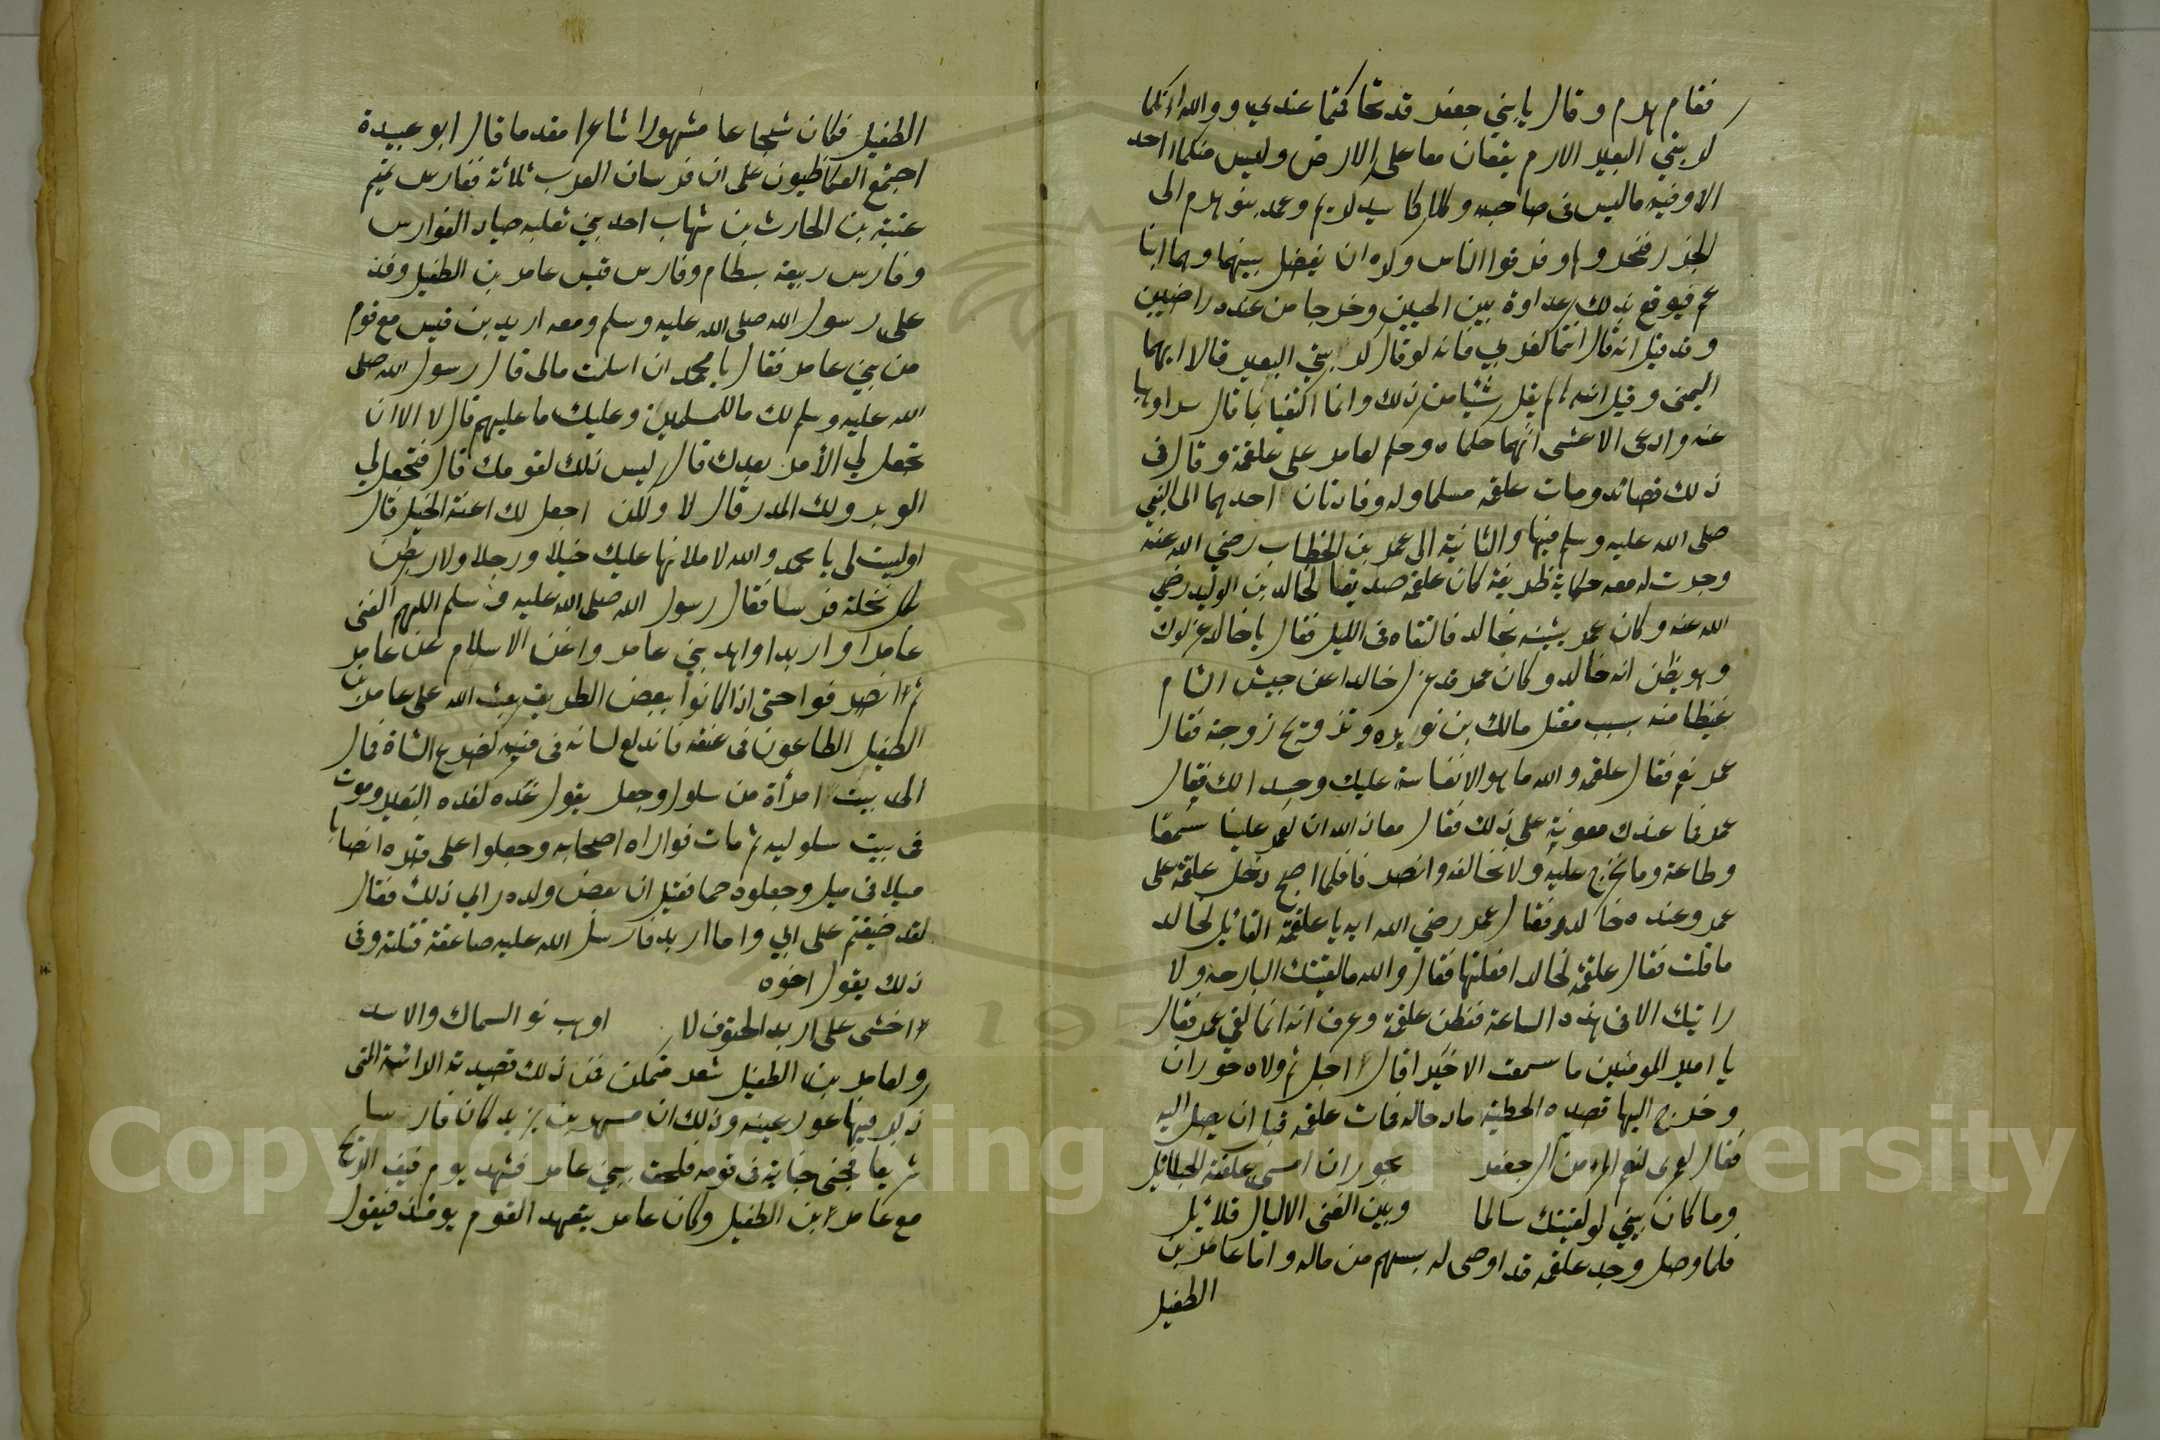 فقام هرم وقال يا بني جعفر قد تحاكمتما عندي ووالله انكما
كركبتي البعير الادم يقعان معا على الارض وليس منكما احد
الا وفيه ما ليس في صاحبه وكلاكما سيد كريم وعمد بنو هرم الى
الجزر فنحروها وفرقوا الناس وكره ان يفضل بينهما وهما ابنا
عم فيوقع بذلك عداوة بين الحيين وخرجا من عنده راضيين
وقد قيل انه قال انتما كغربي فانه لو قال كركبتي البعير قالا ايهما
اليمنى وقيل انه لم يقل شيئا من ذلك وانما اكتفيا بما قال سرا وبها
عنه وادعى الاعشى انهما حكماه وحكم لعامر على علقمة وقال في
ذلك قصائد ومات علقمه مسلما وله وفادتان احدهما الى النبي
صلى الله عليه وسلم فيها والثانية الى عمر بن الخطاب رضي الله عنه
وجرت له معه حكاية ظريفة كان علقمه صديقا لخالد بن الوليد رضي
الله عنه وكان عمر يشبه بخالد فالتقاه في الليل فقال يا خالد عزلوك
وهو يظن انه خالد وكان عمر قد عزل خالدا عن جيش الشام
غيظا منه بسبب مقتل مالك بن نويره وتزويج زوجته فقال
عمر نعم فقال علقمه والله ما هو الا نفاسة عليك وحسدا لك فقال
عمر فما عندك معونة على ذلك فقال معاذ الله ان لعمر علينا سمعا
وطاعة وما نخرج عليه ولا نخالفه وانصرفا فلما اصبح دخل علقمة على
عمر وعنده خالد فقال عمر رضي الله ايه يا علقمة القائل لخالد
ما قلت فقال علقمة لخالد افعلتها فقال والله ما لقيتك البارحه ولا
رايتك الا في هذه الساعة ففطن علقمة وعرف انه انما لقي عمر فقال
يا امير المومنين ما سمعت الا خيرا قال اجل ثم ولاه حوران
وخرج اليها قصده الحطيئة مادحا له فمات علقمه قبل ان يصل اليه
فقال لعمرى لنعم المرء من ال جعفر بحوران امسى علقته الحبائل
وما كان بيني لو لقيتك سالما وبين الغنى الا ليال قلائل
فلما وصل وجد علقمه قد اوصى له بسهم من ماله واما عامر بن
الطفيل
الطفيل فكان شجاعا مشهورا شاعرا مقدما قال ابو عبيدة
اجتمع العكاظيون على ان فرسان العرب ثلاثة ففارس تميم
عتبة بن الحارث بن شهاب احد بني ثعلبه صياد الفوارس
وفارس ربيعة بسطام وفارس قيس عامر بن الطفيل وفد
على رسول الله صلى الله عليه وسلم ومعه اربد بن قيس مع قوم
من بني عامر فقال يا محمد ان اسلمت مالى قال رسول الله صلى
الله عليه وسلم لك ما للمسلمين وعليك ما عليهم قال لا الا ان
تجعل لي الأمر بعدك قال ليس ذلك لقومك قال فتجعل لي
الوبر ولك المدر قال لا ولكن اجعل لك اعنة الخيل قال
اوليت لى يا محمد والله لاملانها عليك خيلا ورجلا ولاربطن
بكل نخلة فرسا فقال رسول الله صلى الله عليه وسلم اللهم اكفنى
عامرا واربدا واهد بني عامر واغن الاسلام عن عامر
ثم انصرفوا حتى اذا كانوا ببعض الطريق بعث الله على عامر بن
الطفيل الطاعون في عنقه فاندلع لسانه في فيه كضرع الشاة فمال
الى بيت امرأة من سلول وجعل يقول غدة كغدة البعير وموت
في بيت سلوليه ثم مات فواراه اصحابه وجعلوا على قبره انصابا
ميلا في ميل وجعلوه حما فقيل ان بعض ولده راى ذلك فقال
لقد ضيقتم على ابي واما اربد فارسل الله عليه صاعقة قتلته وفي
ذلك يقول اخوه
اخشى على اربد الحتوف لا ارهب نو السماك والاسد
ولعامر بن الطفيل شعر متمكن فمن ذلك قصيدته الرائية التى
ذكر فيها عور عينه وذلك ان مسهر بن يزيد كان فارسا
شريفا فجنى جناية في قومه فلحق ببني عامر فشهد يوم فيف الريح
مع عامر ابن الطفيل وكان عامر يتعهد القوم يومئذ فيقول
Copyright © King Saud University
195